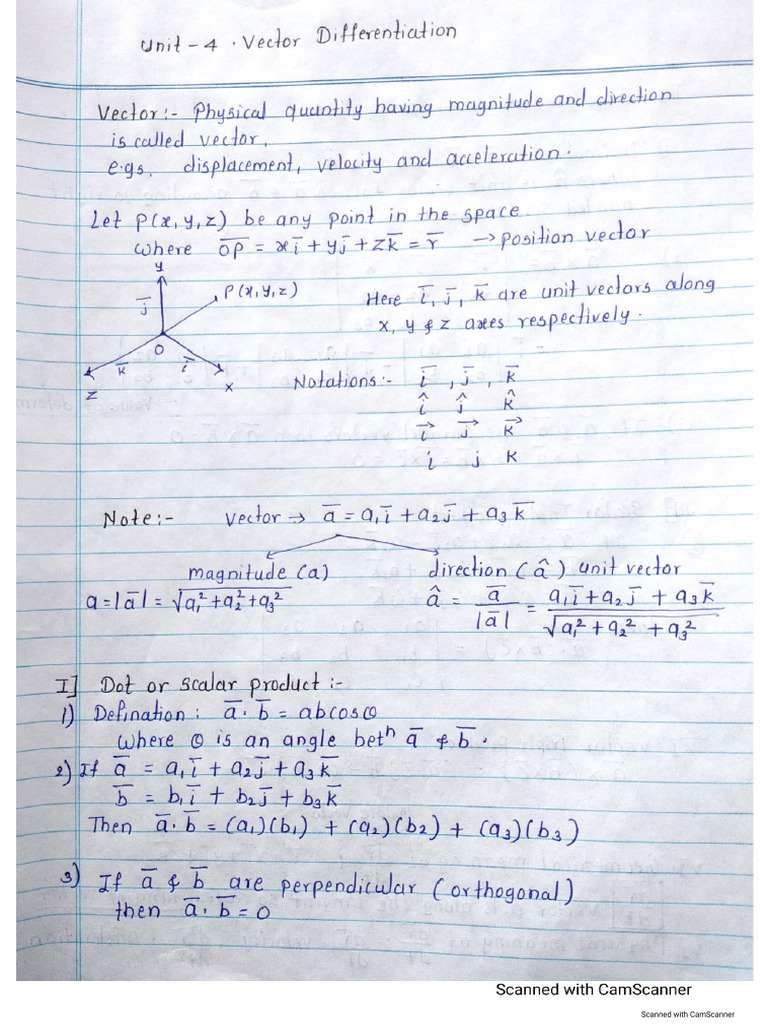 Unit - 4 . Vector Differentiation
Vector :- Physical quantity having magnitude and direction
is called vector,
e.gs, displacement, velocity and acceleration.
Let P(x, y, z) be any point in the space
where \overline{OP} = x\overline{i} + y\overline{j} + z\overline{k} = \overline{r} → position vector
y
P(x, y, z)
\overline{j}
Here \overline{i}, \overline{j}, \overline{k} are unit vectors along
x, y & z axes respectively.
O
\overline{k} \overline{i}
z x
Notations :- \overline{i} , \overline{j} , \overline{k}
\hat{i} \hat{j} \hat{k}
\vec{i} \vec{j} \vec{k}
i j k
Note :- vector → \overline{a} = a₁\overline{i} + a₂\overline{j} + a₃\overline{k}
magnitude (a) direction (\hat{a}) unit vector
a = |\overline{a}| = \sqrt{a₁² + a₂² + a₃²} \hat{a} = \frac{\overline{a}}{|\overline{a}|} = \frac{a₁\overline{i} + a₂\overline{j} + a₃\overline{k}}{\sqrt{a₁² + a₂² + a₃²}}
I] Dot or scalar product :-
1) Defination : \overline{a} . \overline{b} = abcosθ
where θ is an angle betⁿ \overline{a} & \overline{b} .
2) If \overline{a} = a₁\overline{i} + a₂\overline{j} + a₃\overline{k}
\overline{b} = b₁\overline{i} + b₂\overline{j} + b₃\overline{k}
Then \overline{a} . \overline{b} = (a₁)(b₁) + (a₂)(b₂) + (a₃)(b₃)
3) If \overline{a} & \overline{b} are perpendicular (orthogonal)
then \overline{a} . \overline{b} = 0
Scanned with CamScanner
Scanned with CamScanner